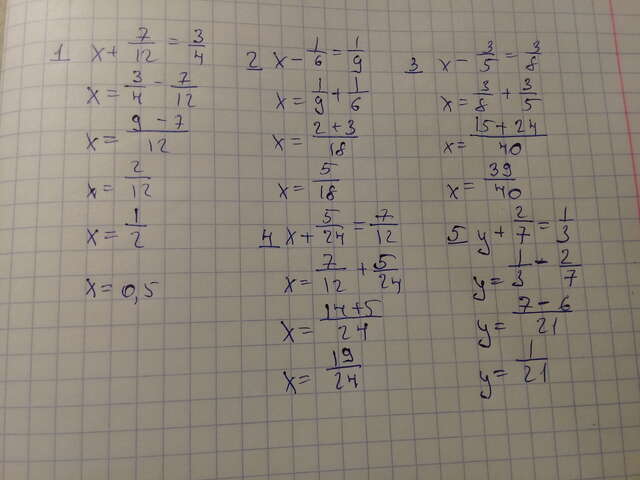 1 x + 7/12 = 3/4
x = 3/4 - 7/12
x = (9 - 7)/12
x = 2/12
x = 1/2
x = 0,5
2 x - 1/6 = 1/9
x = 1/9 + 1/6
x = (2 + 3)/18
x = 5/18
3 x - 3/5 = 3/8
x = 3/8 + 3/5
x = (15 + 24)/40
x = 39/40
4 x + 5/24 = 7/12
x = 7/12 + 5/24
x = (14 + 5)/24
x = 19/24
5 y + 2/7 = 1/3
y = 1/3 - 2/7
y = (7 - 6)/21
y = 1/21